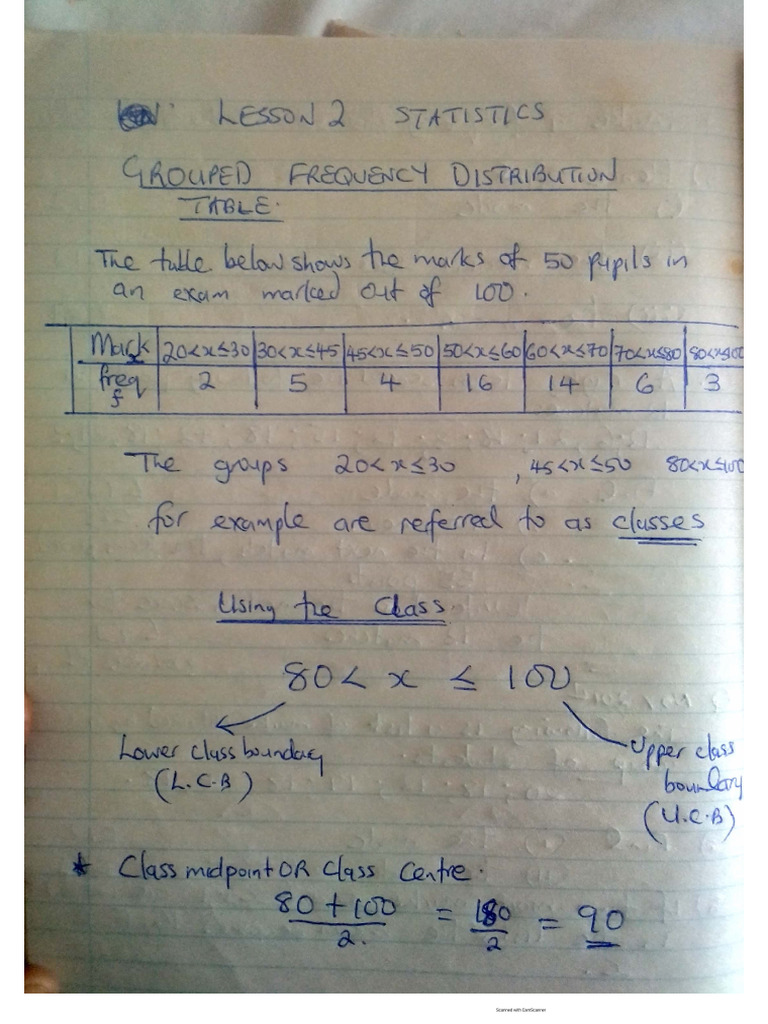 LESSON 2 STATISTICS
GROUPED FREQUENCY DISTRIBUTION
TABLE.
The table below shows the marks of 50 pupils in
an exam marked out of 100.
Mark 20<x≤30 30<x≤45 45<x≤50 50<x≤60 60<x≤70 70<x≤80 80<x≤100
freq f 2 5 4 16 14 6 3
The groups 20<x≤30 , 45<x≤50 80<x≤100
for example are referred to as classes
Using the Class
80 < x ≤ 100
Lower class boundary
(L.C.B)
Upper class
boundary
(U.C.B)
* Class midpoint OR Class Centre.
80 + 100 / 2. = 180 / 2 = 90
Scanned with CamScanner